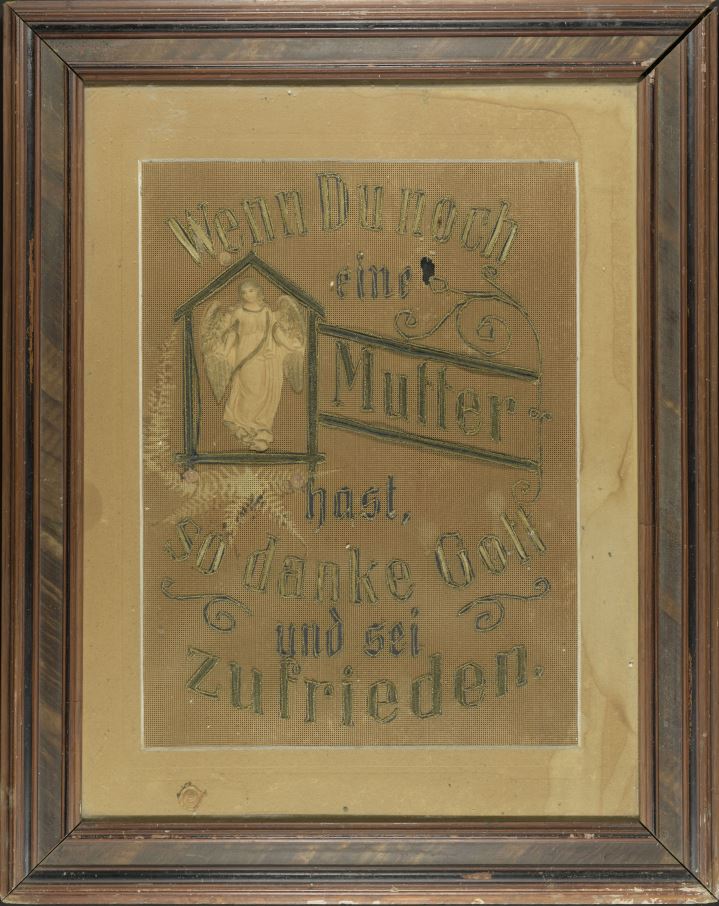 Wenn Du noch
eine
Mutter
hast,
so danke Gott
und sei
zufrieden.